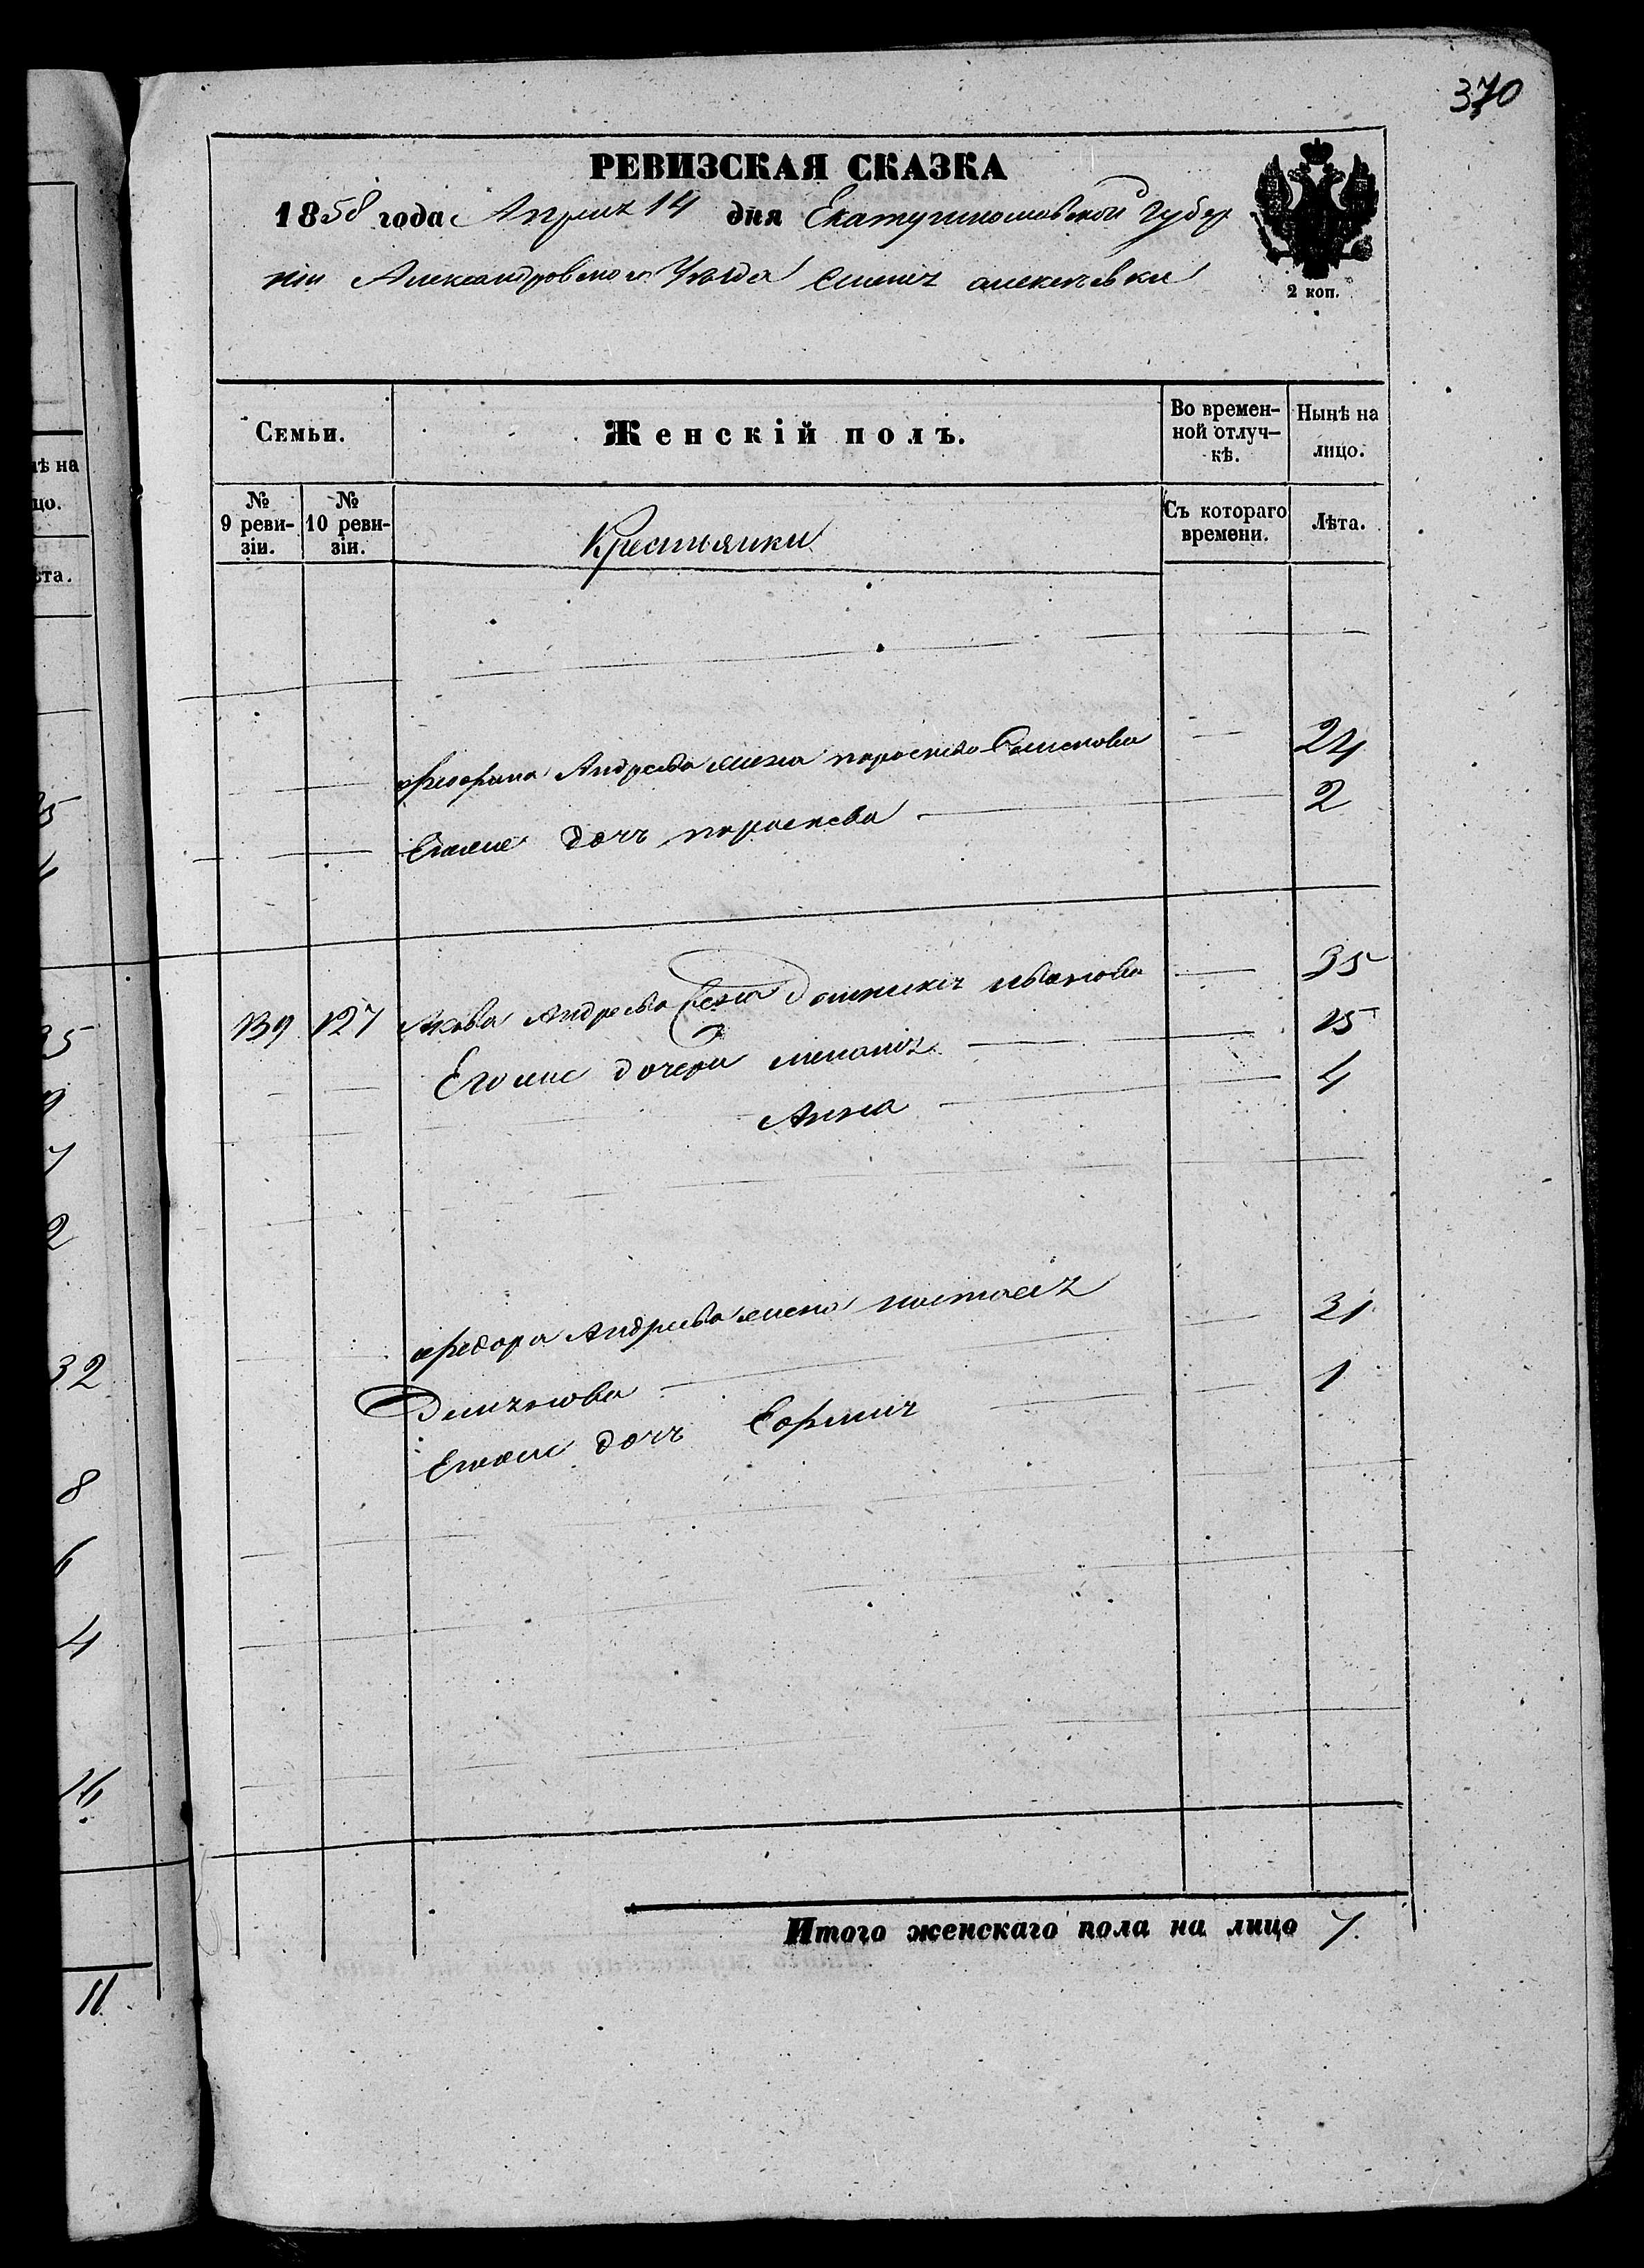 370
РЕВИЗСКАЯ СКАЗКА
1858 года Апреля 14 дня Екатеринославской Губер
нiи Александровского Уезда алексеевки
2 коп.
Семьи.
Женскiй полъ.
Во времен-
ной отлуч-
кѣ.
Нынѣ на
лицо.
№
9 реви-
зiи.
№
10 реви-
зiи.
Крестьянки
Съ котораго
времени.
Лѣта.
Андреева жена 24
Егоже дочь параскева 2
139 127 Якова Андреева Жена иванова 35
Егоже дочери 15
Анна 4
федора Андреева жена настася 31
Егоже дочь 1
Итого женскаго пола на лицо 7.
ѣ на
цо.
ѣта.
32
8
6
4
16
11